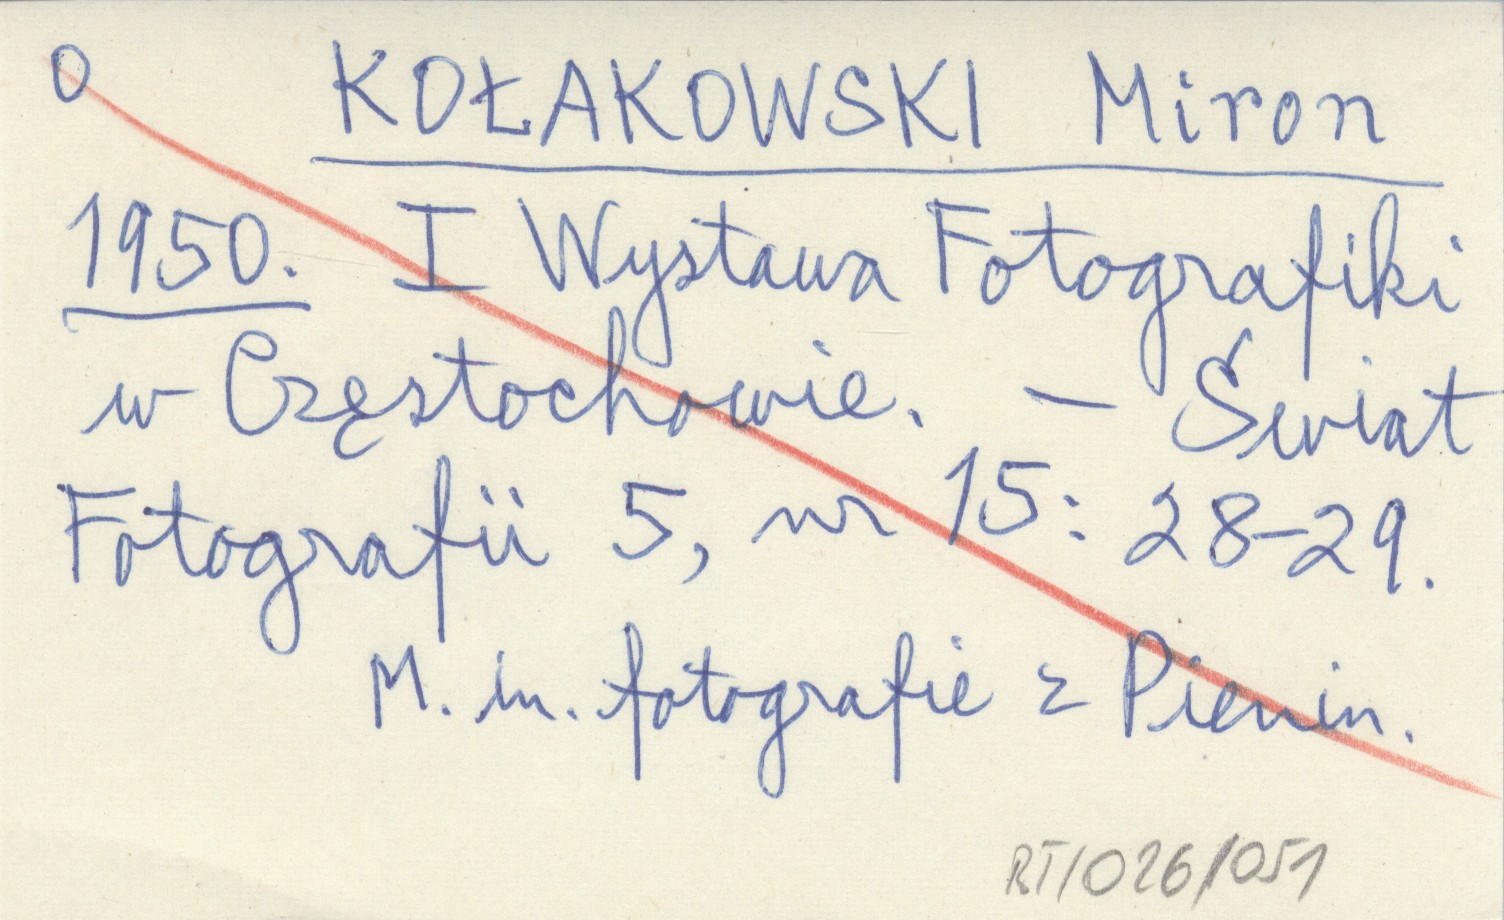 O KOŁAKOWSKI Miron
1950. I Wystawa Fotografiki
w Częstochowie. – Świat
Fotografii 5, nr 15: 28–29.
M. in. fotografie z Pienin.
RT/026/051